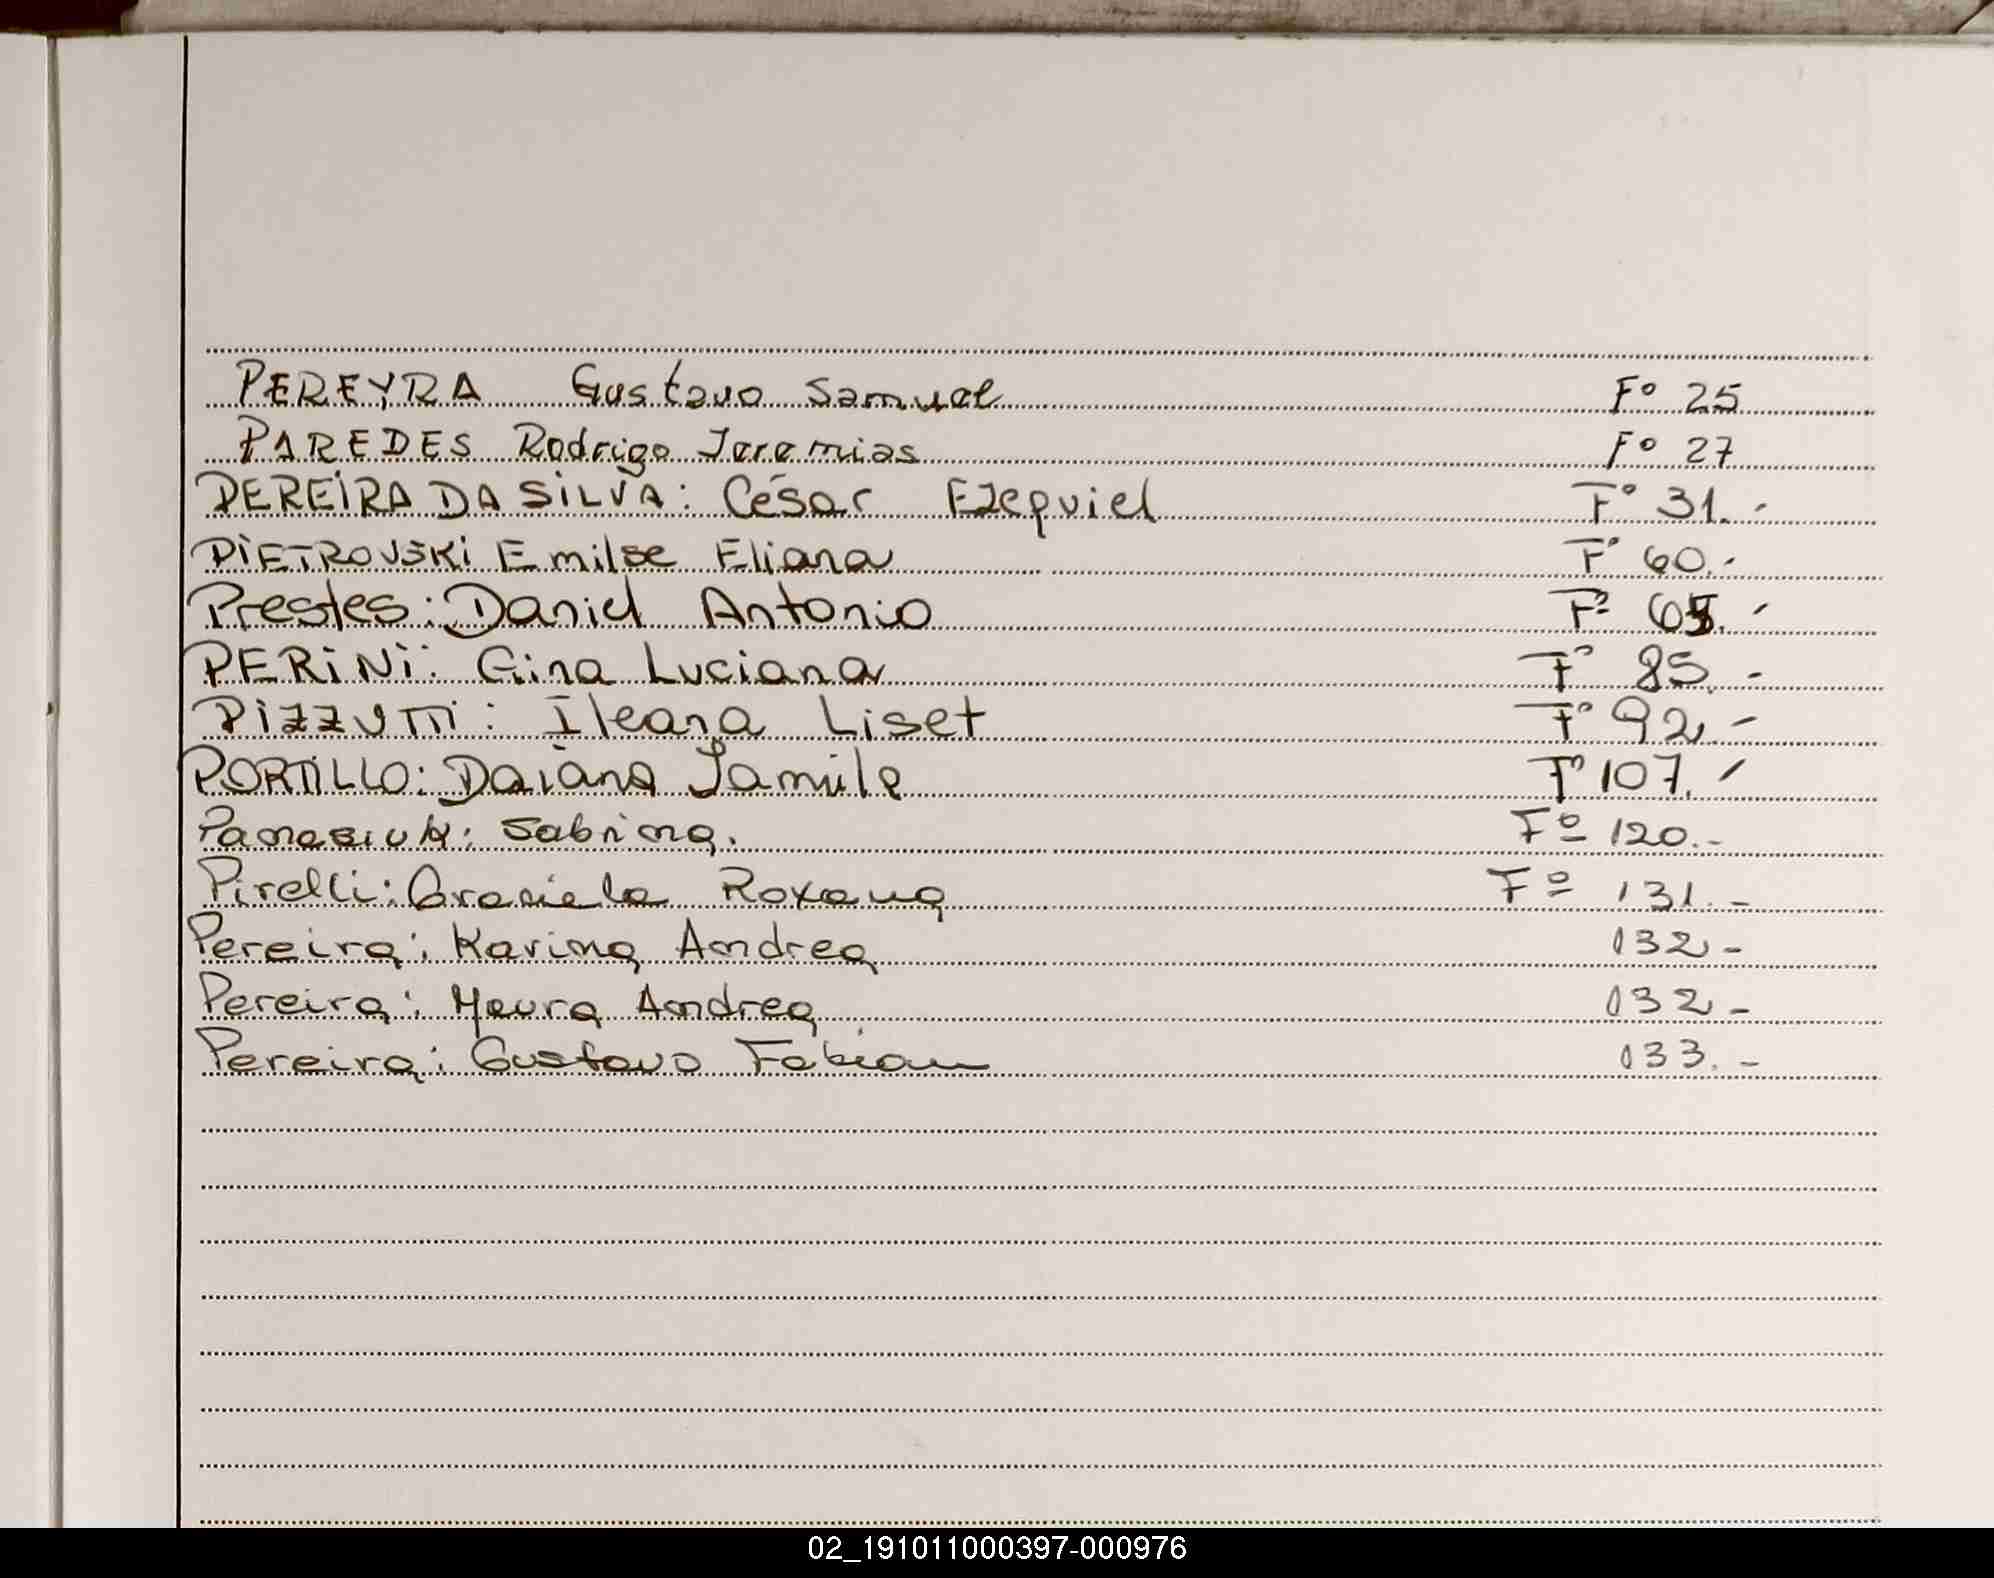 PEREYRA Gustavo Samuel Fº 25
PAREDES Rodrigo Jeremias Fº 27
PEREIRA DA SILVA: César Ezequiel Fº 31.-
PIETROVSKI Emilse Eliana Fº 60.-
Prestes: Daniel Antonio Fº 65.-
PERINI: Gina Luciana Fº 85.-
PIZZUTTI: Ileana Liset Fº 92.-
PORTILLO: Daiana Jamile Fº 107.-
Panasiuk: Sabrina. Fº 120.-
Pirelli: Graciela Roxana Fº 131.-
Pereira: Karina Andrea 132-
Pereira: Maura Andrea 132-
Pereira: Gustavo Fabian 133.-
02_191011000397-000976